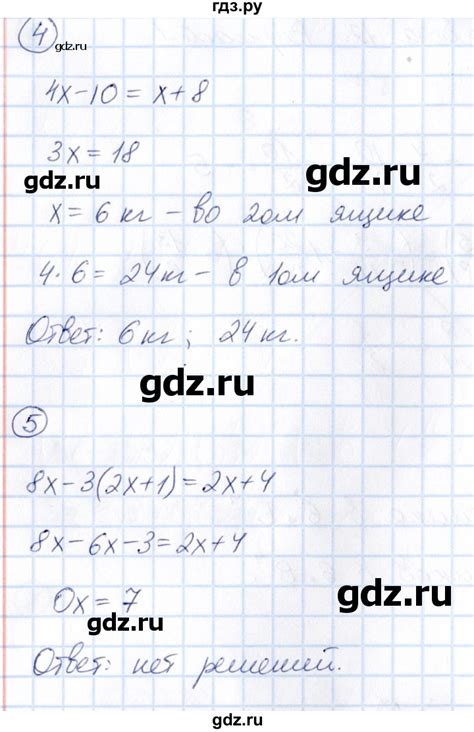 гдз.ру
4
gdz.ru
4x-10 = x+8
3x = 18
gdz.ru
gdz.ru
x = 6 кг - во 2ом ящике
4·6 = 24кг - в 1ом ящике
Ответ: 6кг; 24 кг.
gdz.ru
5
8x-3(2x+1)=2x+4
8x-6x-3=2x+4
gdz.ru
0x = 7
gdz.ru
Ответ: нет решений.
гдз.ру